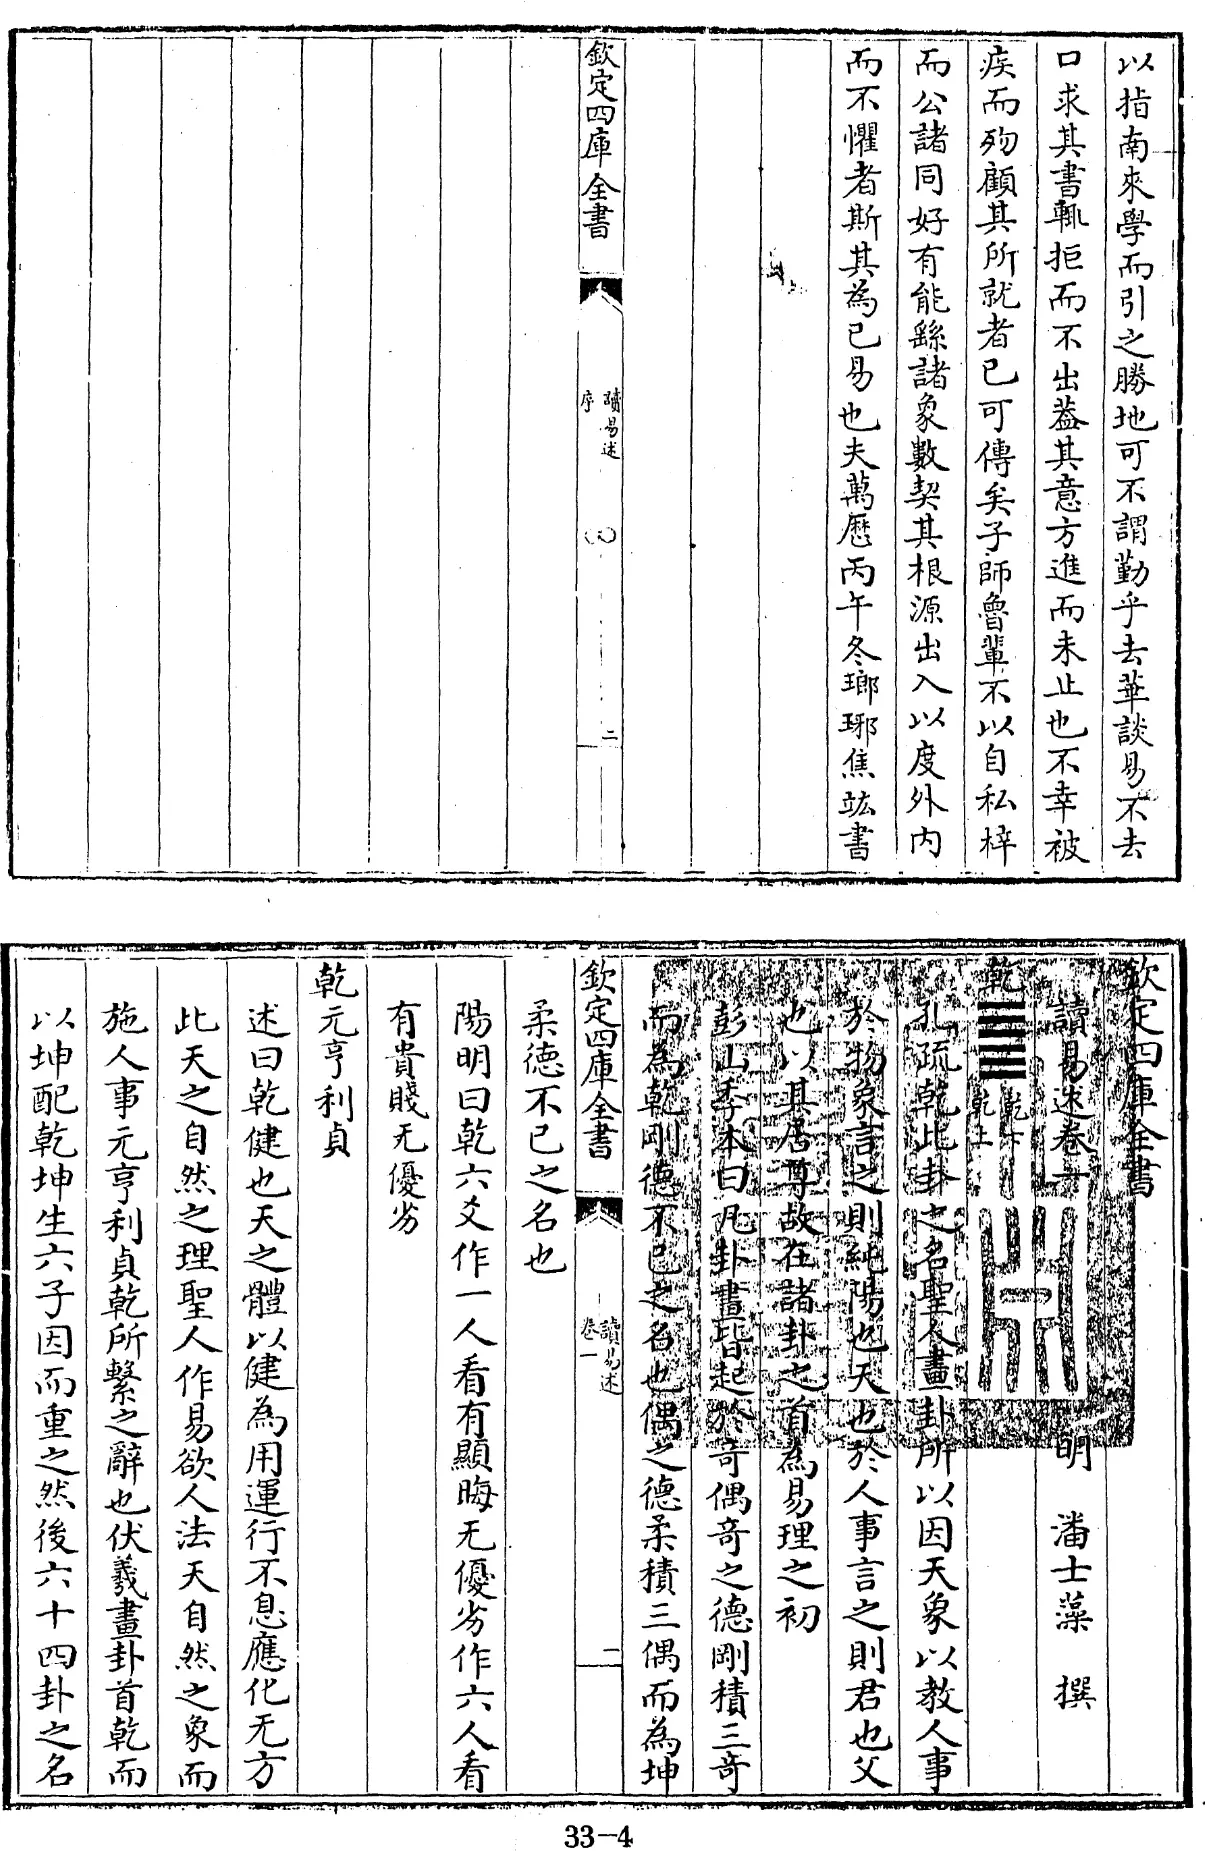 以指南來學而引之勝地可不謂勤乎去華談易不去
口求其書輒拒而不出葢其意方進而未止也不幸被
疾而歿顧其所就者已可傳矣子師魯輩不以自私梓
而公諸同好有能繇諸象數契其根源出入以度外内
而不懼者斯其為已易也夫萬厯丙午冬瑯琊焦竑書
欽定四庫全書
讀易述
序
二
欽定四庫全書
讀易述卷一
明 潘士藻 撰
乾
乾下
乾上
孔疏乾此卦之名聖人畫卦所以因天象以教人事
於物象言之則純陽也天也於人事言之則君也父
也以其居尊故在諸卦之首為易理之初
彭山季本曰凡卦畫皆起於奇偶奇之德剛積三奇
而為乾剛德不已之名也偶之德柔積三偶而為坤
欽定四庫全書
讀易述
卷一
一
柔德不已之名也
陽明曰乾六爻作一人看有顯晦无優劣作六人看
有貴賤无優劣
乾元亨利貞
述曰乾健也天之體以健為用運行不息應化无方
此天之自然之理聖人作易欲人法天自然之象而
施人事元亨利貞乾所繫之辭也伏羲畫卦首乾而
以坤配乾坤生六子因而重之然後六十四卦之名
33-4